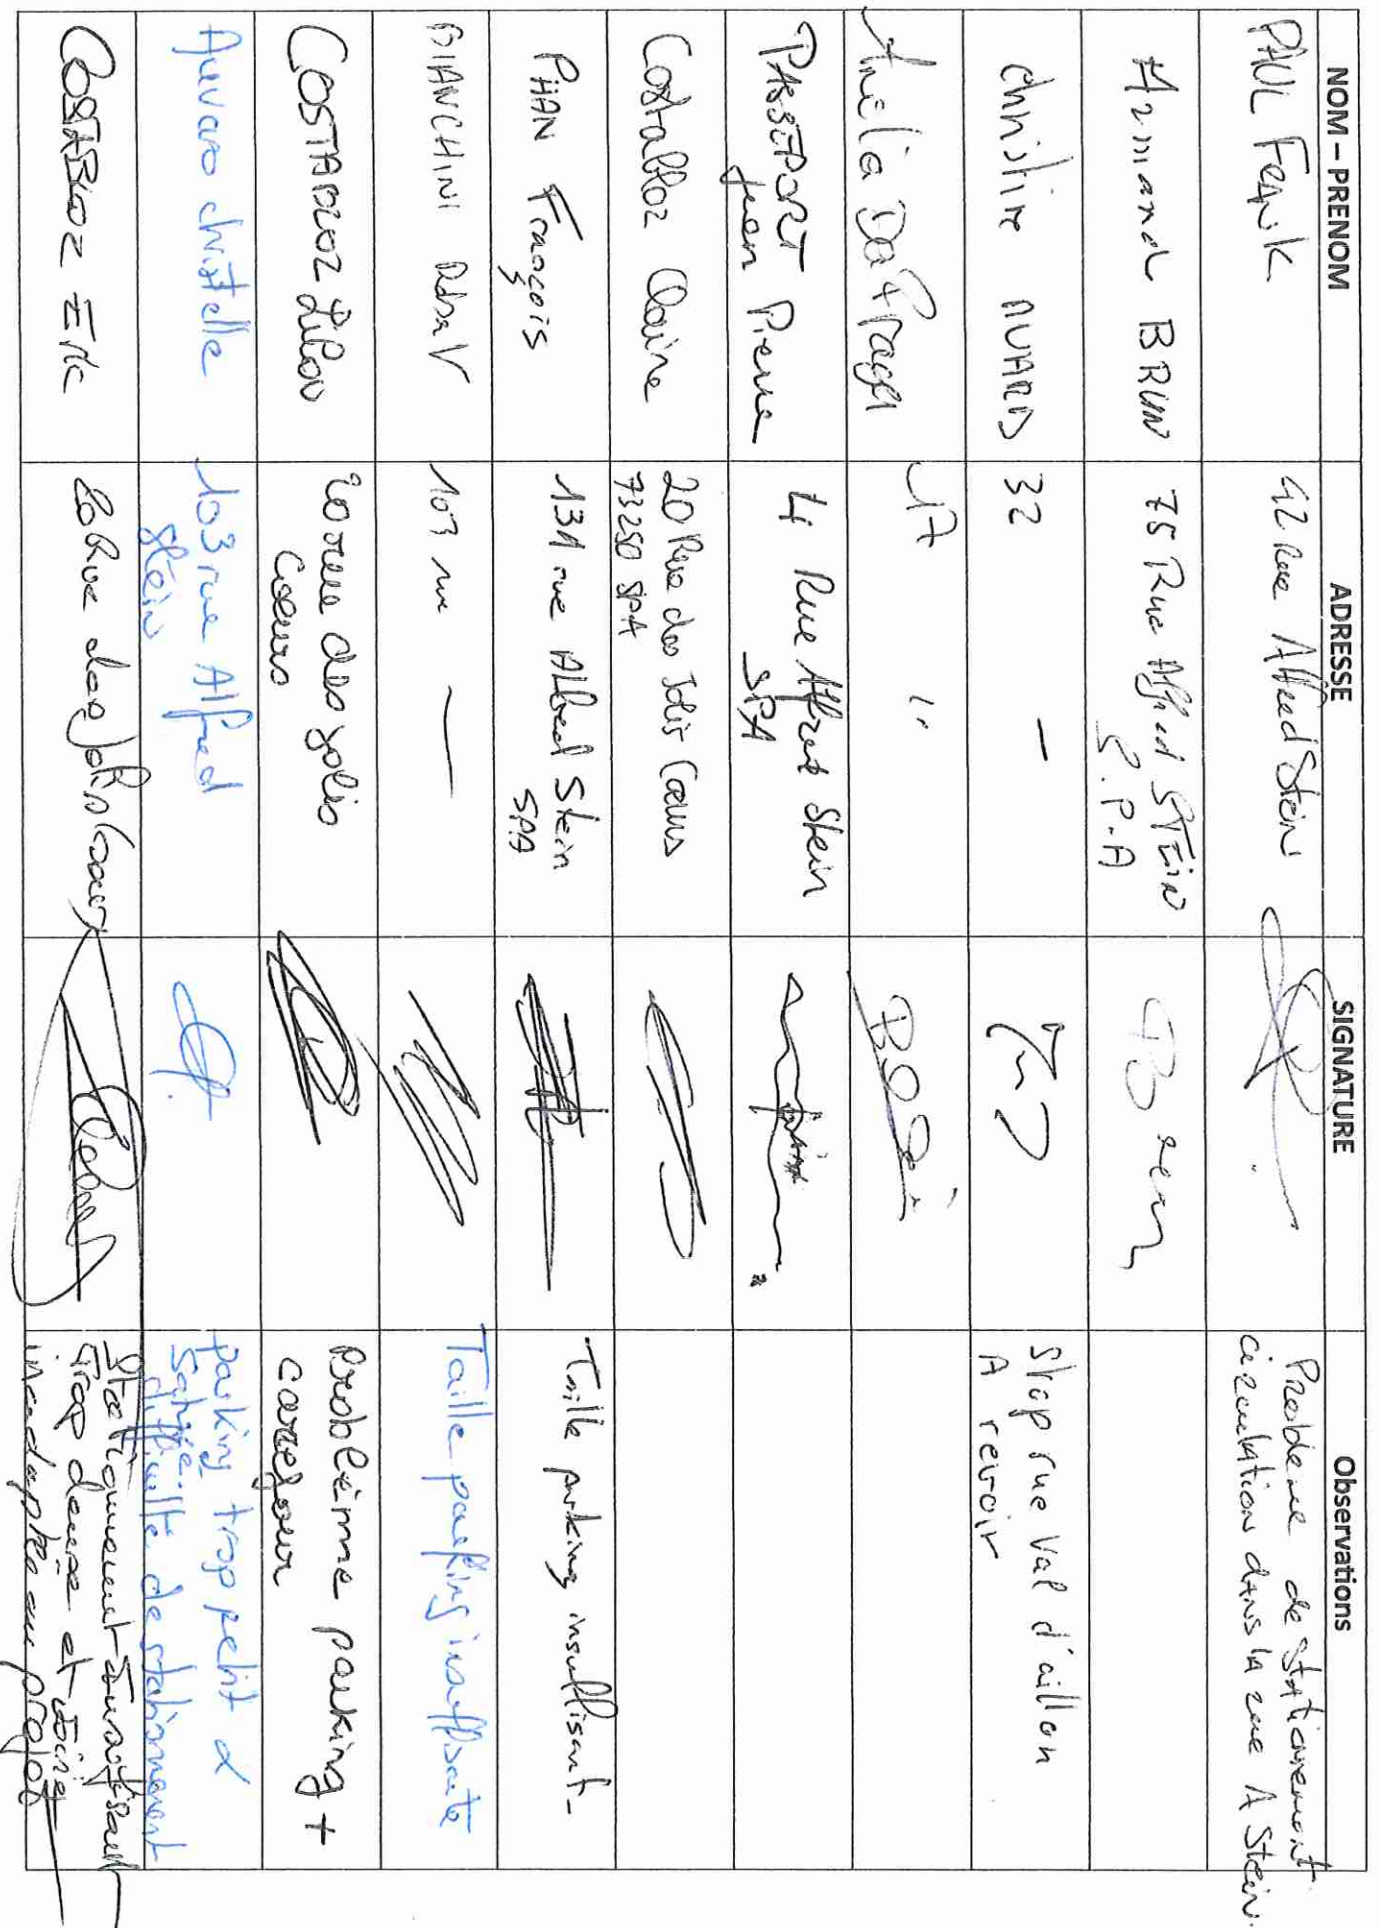 NOM – PRENOM ADRESSE SIGNATURE Observations
PAUL Frank 42 Rue Alfred Stein Problème de stationnement
circulation dans la rue A Stein.
Armand BRUN 75 Rue Alfred STEIN
S.P.A
christine 32 — Stop rue Val d'aillon
A revoir
17 "
PASSEPORT 4 Rue Alfred Stein
Jean Pierre SPA
Costabloz Claire 20 Rue des Jolis Coeurs
73250 SPA
PHAN François 131 rue Albert Stein Taille parking insuffisant-
SPA
BIANCHINI 103 rue — Taille parking insuffisante
COSTABLOZ Lilou 20 rue des jolis Problème parking +
Coeurs carrefour
christelle 103 rue Alfred parking trop petit &
Stein
difficulté de stationnement
COSTABLOZ Eric 20 Rue des jolis Coeurs Stationnement insuffisant
trop dense et
inadaptée au projet